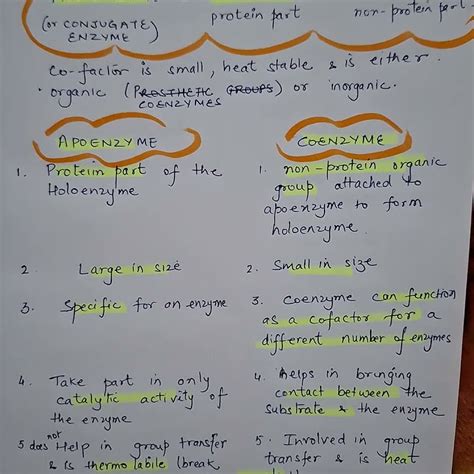 protein part non-protein part
(or CONJUGATE)
ENZYME
Co-factor is small, heat stable & is either
organic (PROSTHETIC GROUPS) or inorganic.
COENZYMES
APOENZYME
1. Protein part of the
Holoenzyme
2. Large in size
3. Specific for an enzyme
4. Take part in only
catalytic activity of
the enzyme
5 does not Help in group transfer
& is thermo labile (break
COENZYME
1. non-protein organic
group attached to
apoenzyme to form
holoenzyme.
2. Small in size
3. Coenzyme can function
as a cofactor for a
different number of enzymes
4. helps in bringing
contact between the
substrate & the enzyme
5. Involved in group
transfer & is heat